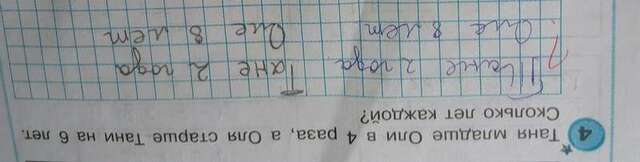 4 Таня младше Оли в 4 раза, а Оля старше Тани на 6 лет.
Сколько лет каждой?
Тане 2 года Тане 2 года
Оле 8 лет Оле 8 лет